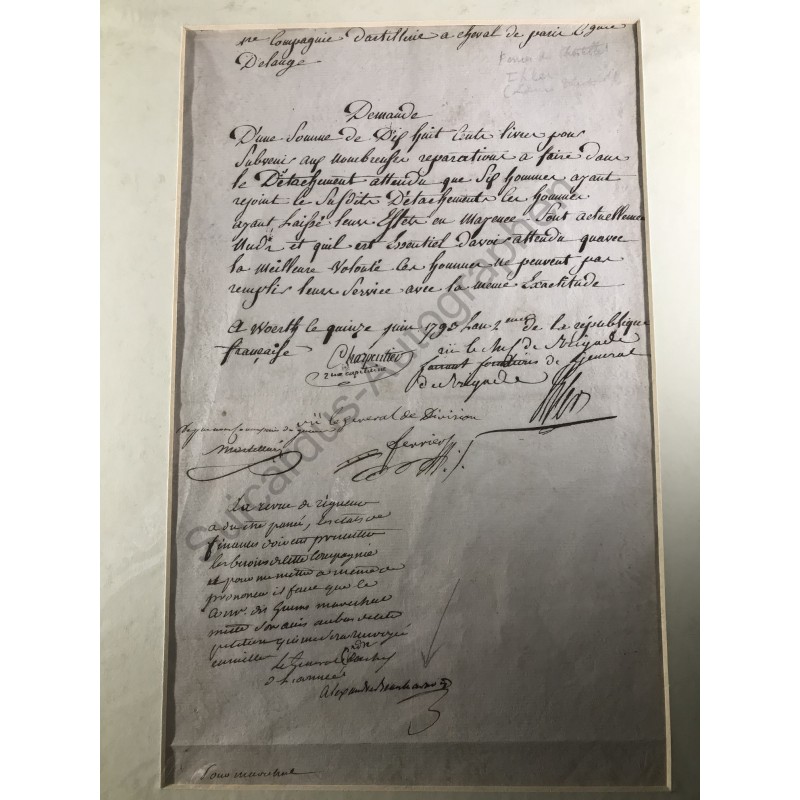 1re Compagnie d'artillerie a cheval de paris
Delange
Demande
D'une Somme de Dix huit Cents livres pour
Subvenir aux nombreuses reparations a faire dans
le Détachement attendu que Six hommes ayant
rejoint le Susdit Détachement les hommes
ayant Laissé leurs Effets en Mayence Sont actuellement
Nuds et quil est Essentiel d'avoir attendu quavec
la Meilleure Volonté les hommes ne peuvent pas
remplir leur Service avec la même Exactitude
A Woerth le quinze juin 1793 Lan 2eme de la république
française
Charpentier
2nd capitaine
vu le chef de Brigade
faisant fonctions de General
de Brigade
vu le general de Division
ferrier
La revue de rigueur
a du être passée, les états de
finances doivent
les besoins de cette Compagnie
et pour me mettre a même de
prononcer il faut que le
mette son avis au bas de cette
petition qui me sera renvoyée
ensuite
Le General
Alexandre Beauharnois
Suicardus-Autographen